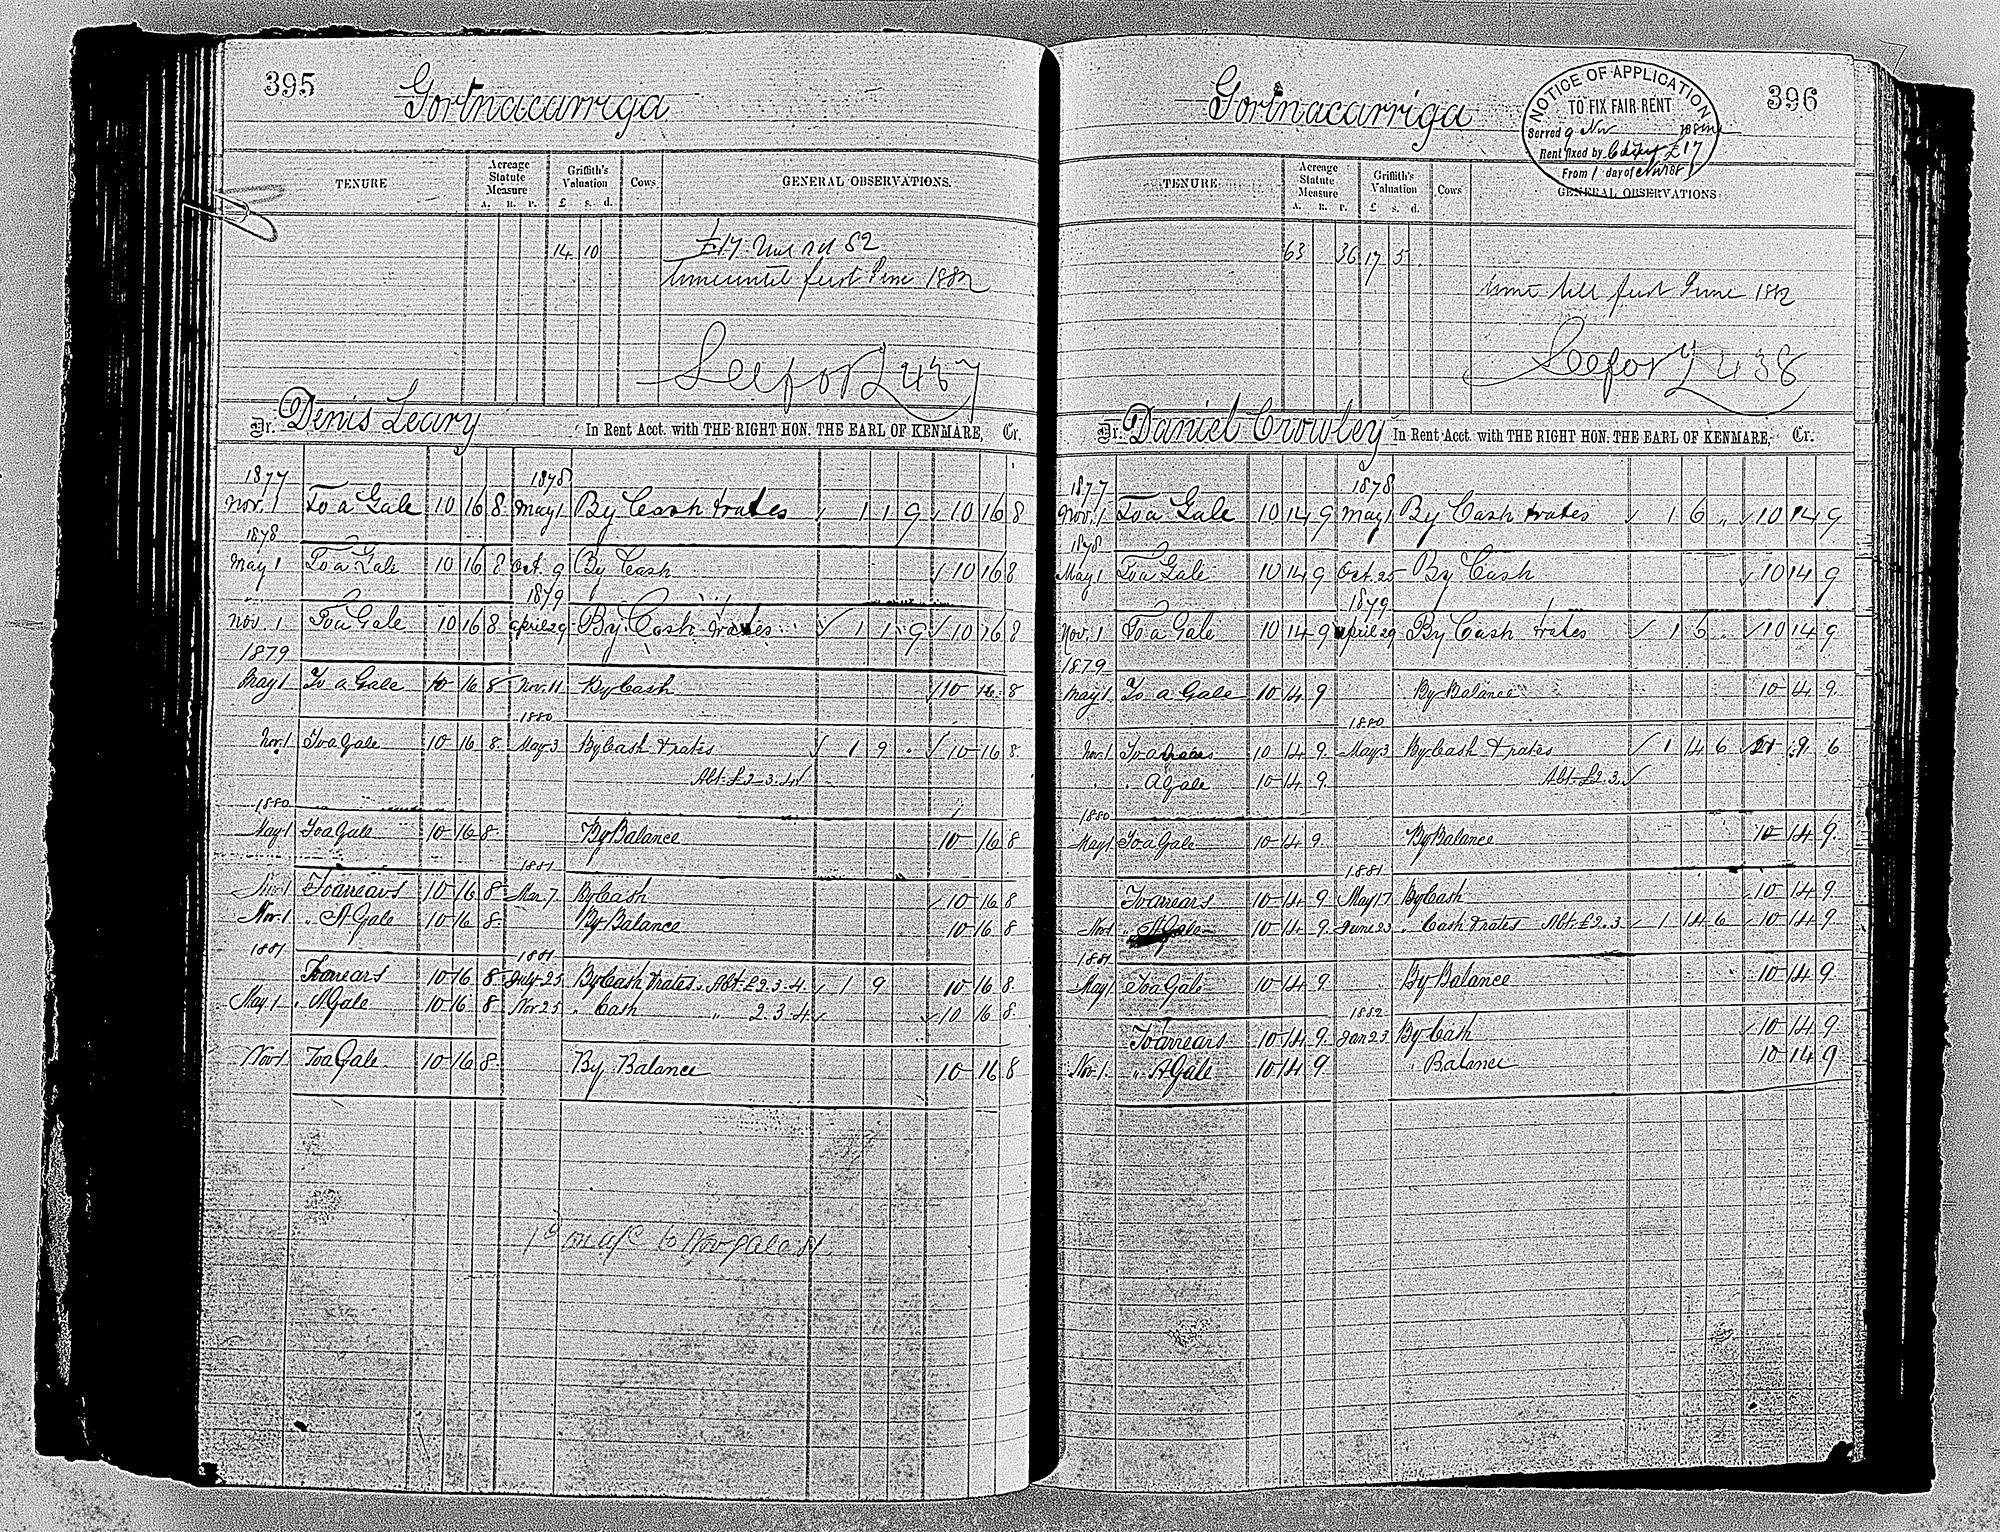 395
Gortnacarriga
TENURE
Acreage Statute Measure
A. R. P.
Griffith's Valuation
£ s. d.
Cows
GENERAL OBSERVATIONS.
14 10
£17 82
time until first June 1882
See for £ 437
Dr. Denis Leary In Rent Acct. with THE RIGHT HON. THE EARL OF KENMARE, Cr.
1877 1878
Nov. 1 To a Gale 10 16 8 May 1 By Cash & rates √ 1 1 9 √ 10 16 8
1878
May 1 To a Gale 10 16 8 Oct. 9 By Cash √ 10 16 8
1879
Nov. 1 To a Gale 10 16 8 April 29 By Cash & rates √ 1 1 9 √ 10 16 8
1879
May 1 To a Gale 10 16 8 Nov. 11 By Cash √ 10 16 8
1880
Nov. 1 To a Gale 10 16 8 May 3 By Cash & rates √ 1 9 " √ 10 16 8
Abt. £2.3.4 √
1880
May 1 To a Gale 10 16 8 By Balance 10 16 8
1881
To arrears 10 16 8 Mar. 7 By Cash √ 10 16 8
Nov. 1 " A Gale 10 16 8 By Balance 10 16 8
1881 1881
To arrears 10 16 8 July 25 By Cash & rates. Abt. £2.3.4 √ 1 9 10 16 8
May 1 " A Gale 10 16 8 Nov. 25 " Cash " 2.3.4 √ √ 10 16 8
Nov 1 To a Gale 10 16 8 By Balance 10 16 8
on a/c to Nov gale 81
396
Gortnacarriga
NOTICE OF APPLICATION
TO FIX FAIR RENT
Served 9 Nov 188
Rent fixed by £17
From 1 day of Nov 188
TENURE
Acreage Statute Measure
A. R. P.
Griffith's Valuation
£ s. d.
Cows
GENERAL OBSERVATIONS
63 36 17 5
time till first June 1882
See for £ 438
Dr. Daniel Crowley In Rent Acct. with THE RIGHT HON. THE EARL OF KENMARE, Cr.
1877 1878
Nov. 1 To a Gale 10 14 9 May 1 By Cash & rates √ 1 6 " √ 10 14 9
1878
May 1 To a Gale 10 14 9 Oct. 25 By Cash √ 10 14 9
1879
Nov. 1 To a Gale 10 14 9 April 29 By Cash & rates √ 1 6 " √ 10 14 9
1879
May 1 To a Gale 10 14 9 By Balance 10 14 9
1880
Nov. 1 To arrears 10 14 9 May 3 By Cash & rates √ 1 14 6 √ 21 9 6
" A Gale 10 14 9 Abt. £2.3 √
1880
May 1 To a Gale 10 14 9 By Balance 10 14 9
1881
To arrears 10 14 9 May 17 By Cash √ 10 14 9
Nov 1 " A Gale 10 14 9 June 23 " Cash & rates Abt. £2.3 √ 1 14 6 √ 10 14 9
1881
May 1 To a Gale 10 14 9 By Balance 10 14 9
1882
To arrears 10 14 9 Jan 23 By Cash √ 10 14 9
Nov. 1. " A Gale 10 14 9 " Balance 10 14 9